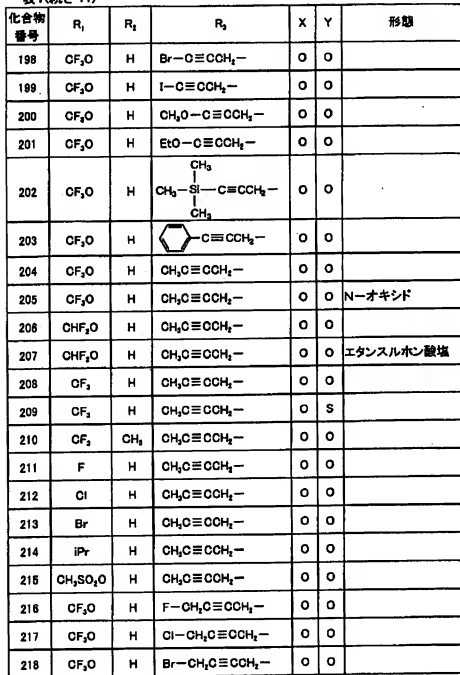 化合物番号 R₁ R₂ R₃ X Y 形態
198 CF₃O H Br－C≡CCH₂－ O O
199 CF₃O H I－C≡CCH₂－ O O
200 CF₃O H CH₃O－C≡CCH₂－ O O
201 CF₃O H EtO－C≡CCH₂－ O O
CH₃
202 CF₃O H CH₃－Si－C≡CCH₂－ O O
CH₃
203 CF₃O H －C≡CCH₂－ O O
204 CF₃O H CH₃C≡CCH₂－ O O
205 CF₃O H CH₃C≡CCH₂－ O O N－オキシド
206 CHF₂O H CH₃C≡CCH₂－ O O
207 CHF₂O H CH₃C≡CCH₂－ O O エタンスルホン酸塩
208 CF₃ H CH₃C≡CCH₂－ O O
209 CF₃ H CH₃C≡CCH₂－ O S
210 CF₃ CH₃ CH₃C≡CCH₂－ O O
211 F H CH₃C≡CCH₂－ O O
212 Cl H CH₃C≡CCH₂－ O O
213 Br H CH₃C≡CCH₂－ O O
214 iPr H CH₃C≡CCH₂－ O O
215 CH₃SO₂O H CH₃C≡CCH₂－ O O
216 CF₃O H F－CH₂C≡CCH₂－ O O
217 CF₃O H Cl－CH₂C≡CCH₂－ O O
218 CF₃O H Br－CH₂C≡CCH₂－ O O